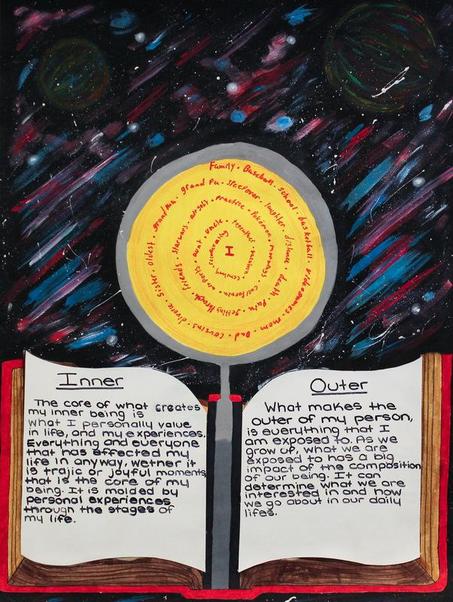 Family · Baseball · school · basketball · video games · mom · Dad · cousins · divorce · Sister · oldest · grandma · grand Pa · sleepover · laughter · distance · death · Pain · friends · starwars · airsoft · practice · Pokémon · California · aunt · uncle
I
Inner
The core of what creates
my inner being is
what I personally value
in life, and my experiences.
Everything and everyone
that has affected my
life in anyway, wetner it
is trajic or joyful moments
that is the core of my
being. It is molded by
personal experiences
through the stages of
my life.
Outer
What makes the
outer of my person,
is everything that I
am exposed to. As we
grow up, what we are
exposed to has a big
impact of the composition
of our being. It can
determine what we are
interested in and how
we go about in our daily
lifes.